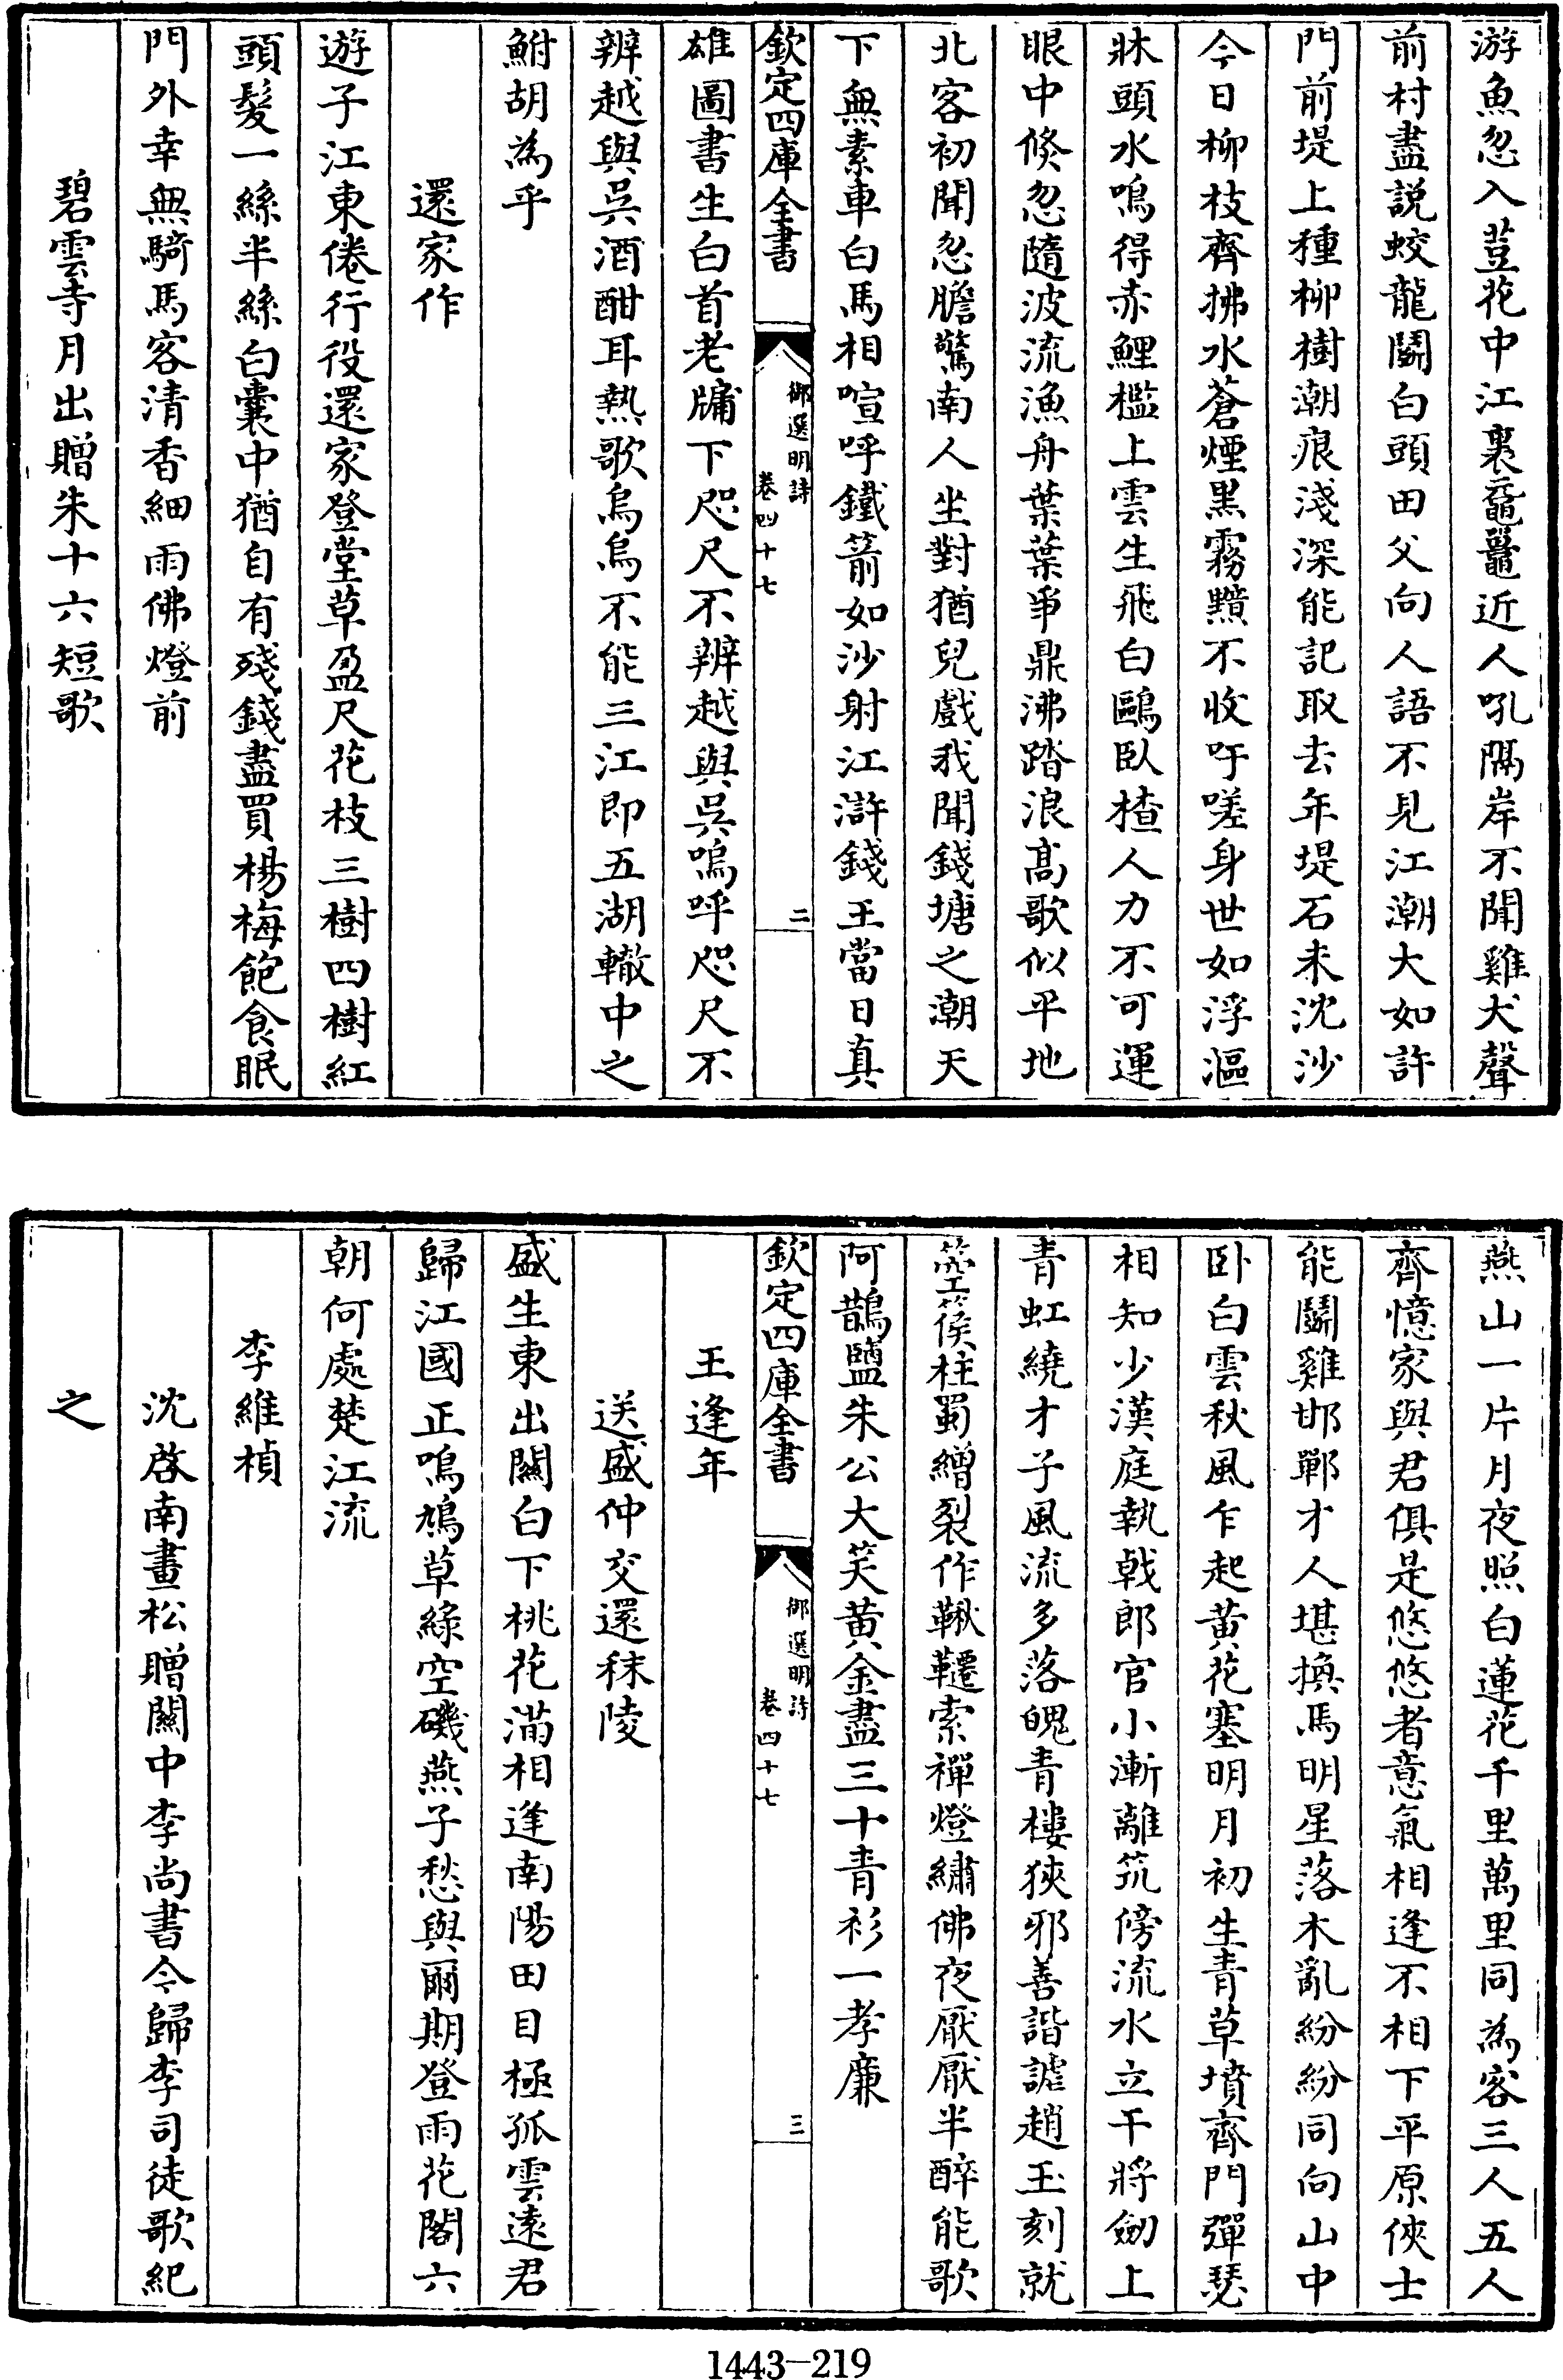 游魚忽入荳花中江裏黿鼉近人吼隔岸不聞雞犬聲
前村盡説蛟龍鬭白頭田父向人語不見江潮大如許
門前堤上種柳樹潮痕淺深能記取去年堤石未沈沙
今日柳枝齊拂水蒼煙黒霧黯不收吁嗟身世如浮漚
牀頭水鳴得赤鯉檻上雲生飛白鷗臥楂人力不可運
眼中倐忽隨波流漁舟葉葉爭鼎沸踏浪髙歌似平地
北客初聞忽膽驚南人坐對猶兒戲我聞錢塘之潮天
下無素車白馬相喧呼鐵箭如沙射江滸錢王當日真
欽定四庫全書
御選明詩
卷四十七
二
雄圖書生白首老牖下咫尺不辨越與吳嗚呼咫尺不
辨越與吳酒酣耳熱歌烏烏不能三江即五湖轍中之
鮒胡為乎
還家作
遊子江東倦行役還家登堂草盈尺花枝三樹四樹紅
頭髮一絲半絲白囊中猶自有殘錢盡買楊梅飽食眠
門外幸無騎馬客清香細雨佛燈前
碧雲寺月出贈朱十六短歌
燕山一片月夜照白蓮花千里萬里同為客三人五人
齊憶家與君俱是悠悠者意氣相逢不相下平原俠士
能鬭雞邯鄲才人堪換馬明星落木亂紛紛同向山中
卧白雲秋風乍起黄花塞明月初生青草墳齊門彈瑟
相知少漢庭執戟郎官小漸離筑傍流水立干將劒上
青虹繞才子風流多落魄青樓狹邪善諧謔趙玉刻就
箜篌柱蜀繒裂作鞦韆索禪燈繡佛夜厭厭半醉能歌
阿鵲鹽朱公大笑黄金盡三十青衫一孝廉
欽定四庫全書
御選明詩
卷四十七
三
王逢年
送盛仲交還秣陵
盛生東出關白下桃花滿相逢南陽田目極孤雲遠君
歸江國正鳴鳩草綠空磯燕子愁與爾期登雨花閣六
朝何處楚江流
李維楨
沈啓南畫松贈關中李尚書今歸李司徒歌紀
之
1443—219